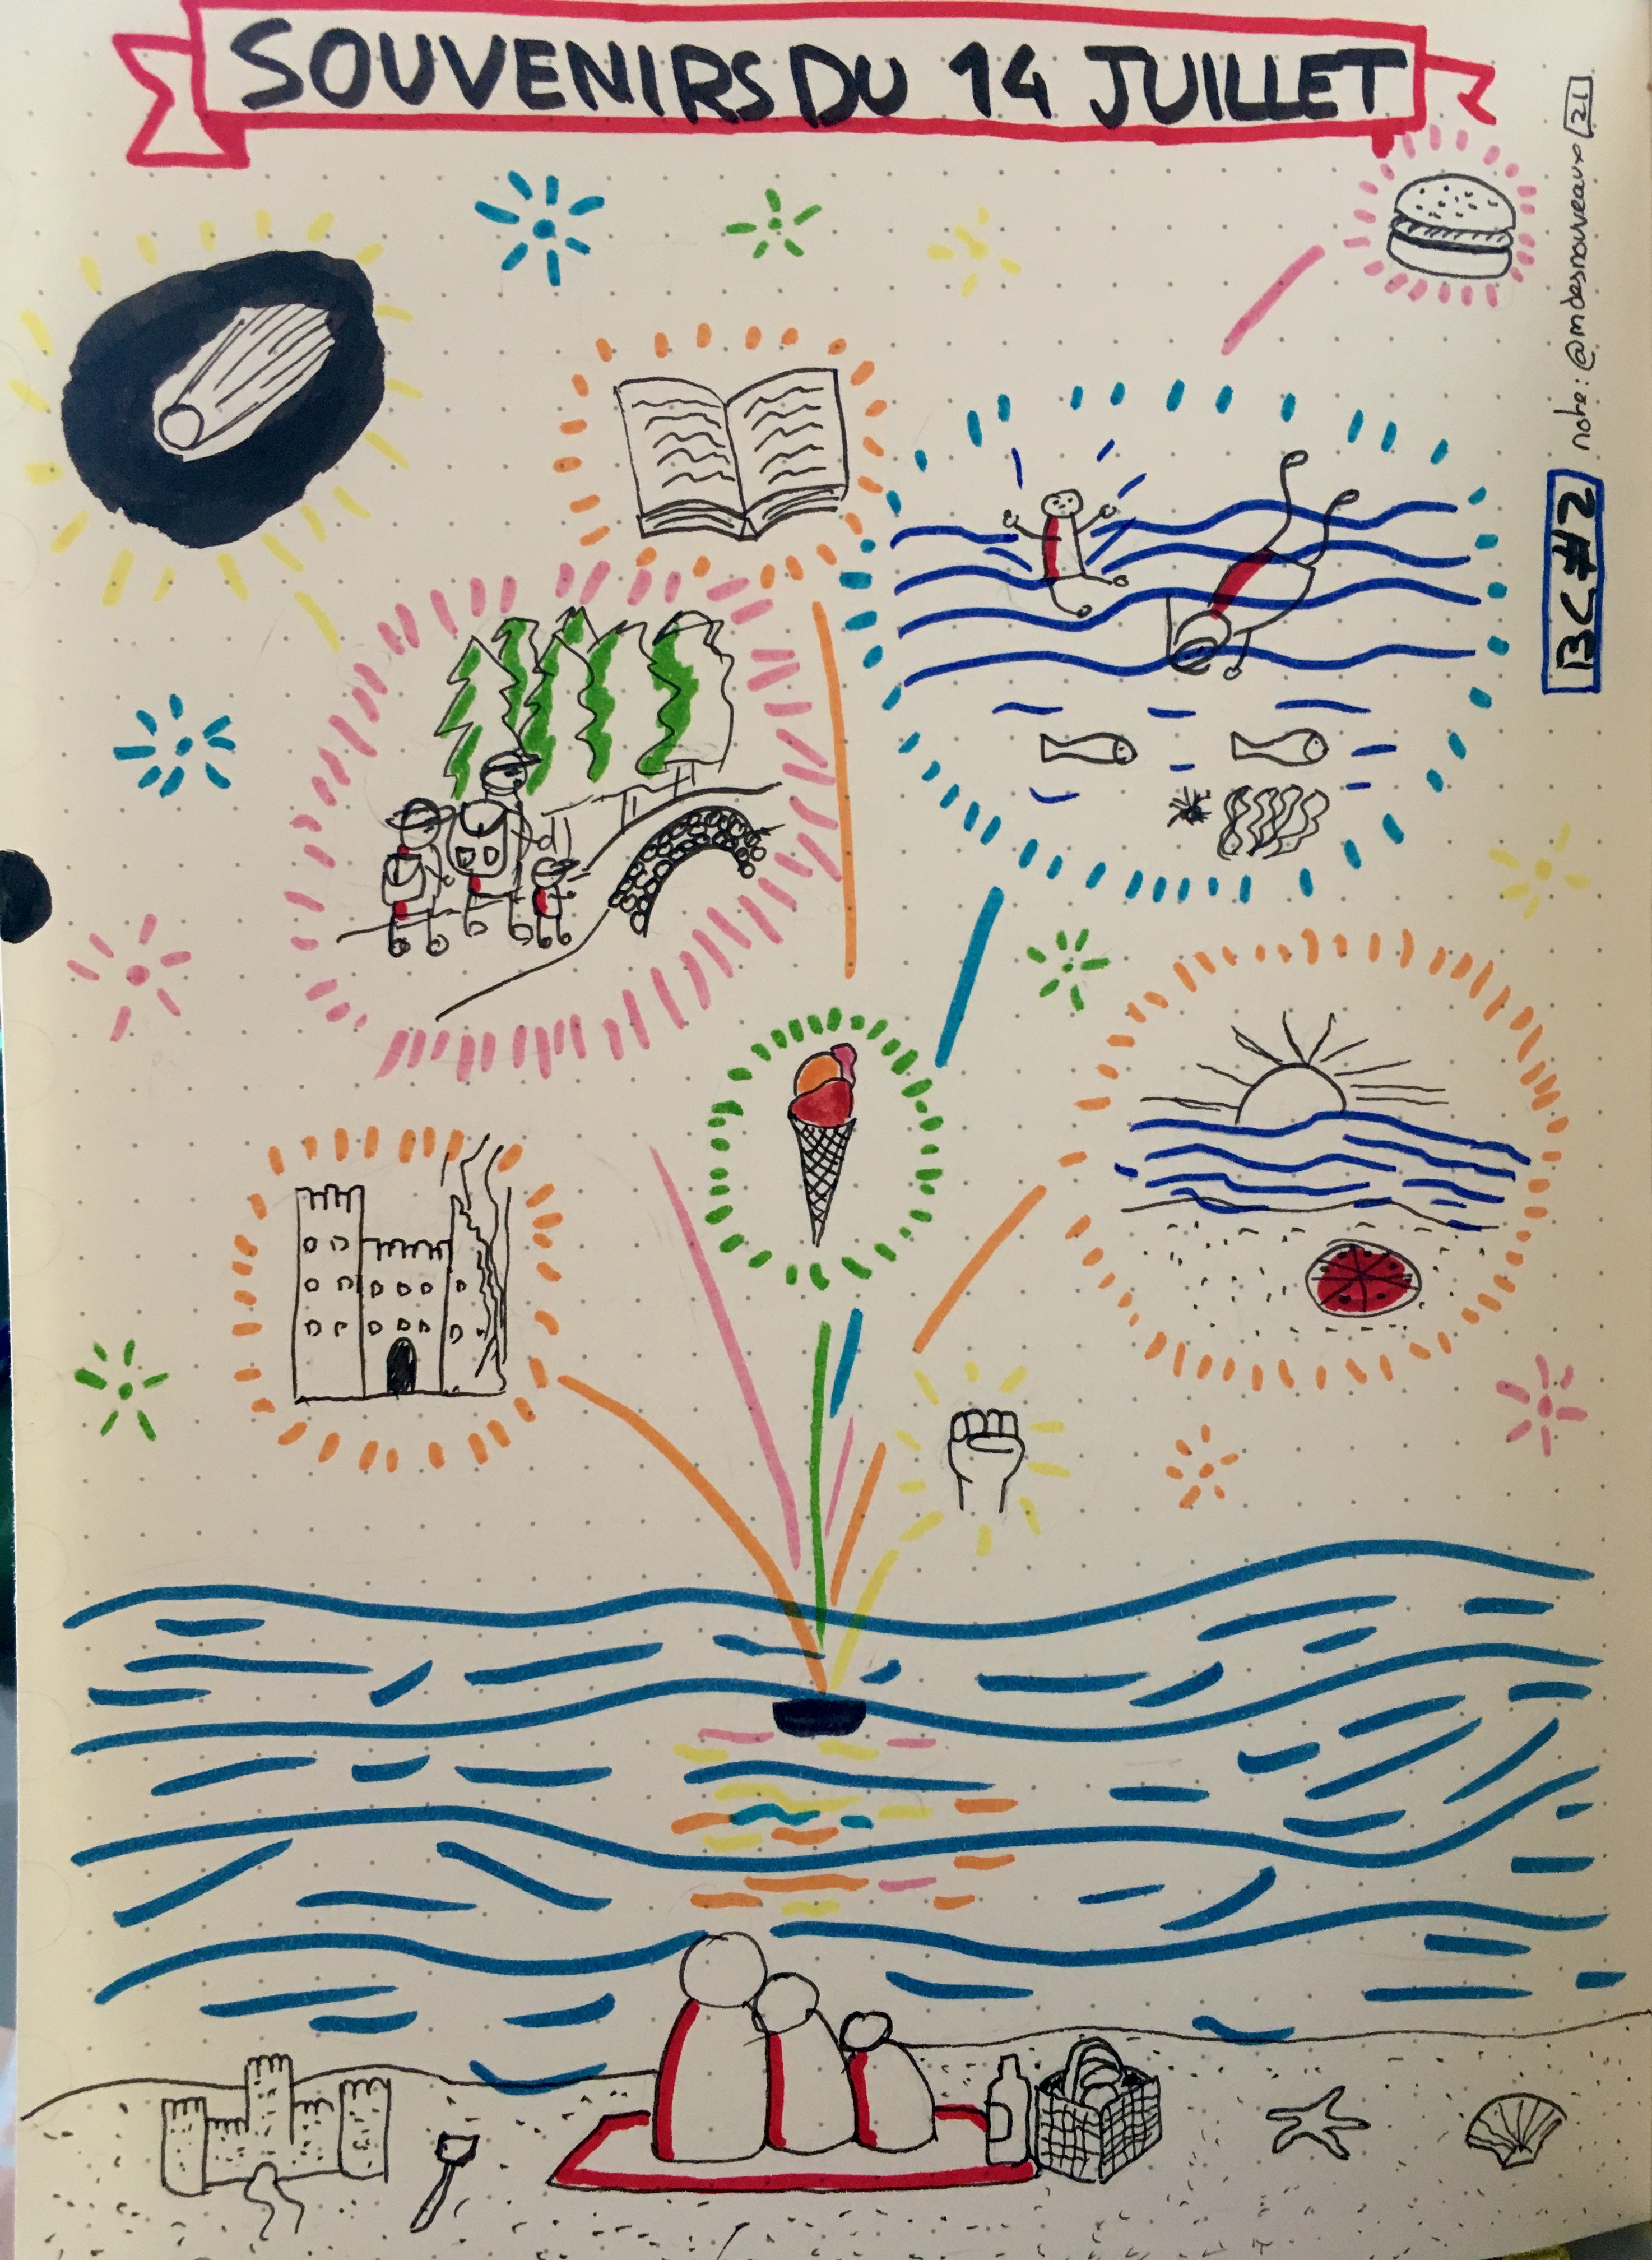 SOUVENIRS DU 14 JUILLET
note: @mdesnouveaux 21
BC#2